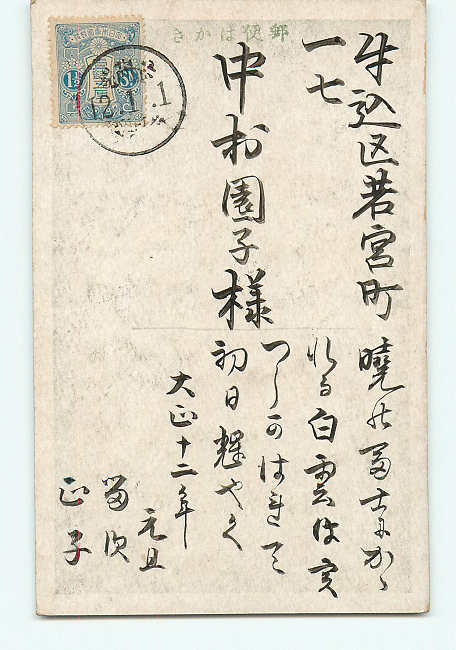 郵便はかき
牛込区若宮町
一七
中村園子様
暁の冨士にかゝ
れる白雲は
つしかはれて
初日輝やく
大正十二年
元旦
正子
1½
12.1.1